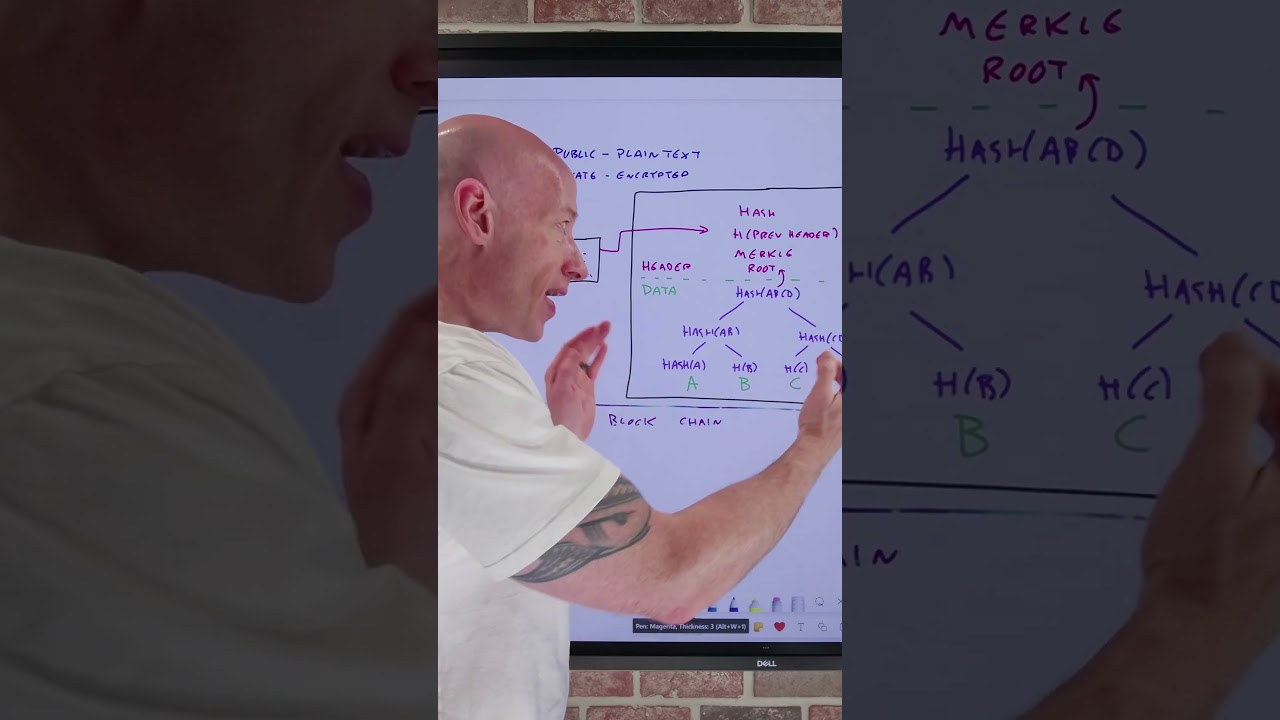 PUBLIC - PLAIN TEXT
ATE - ENCRYPTED
HASH
H(PREV HEADER)
MERKLE
ROOT
HEADER
DATA
HASH(ABCD)
HASH(AB)
HASH(CD
HASH(A)
H(B)
H(C)
A
B
C
BLOCK CHAIN
Pen: Magenta, Thickness: 3 (Alt+W+1)
DELL
MERKLE
ROOT
HASH(ABCD)
H(AB)
HASH(CD
H(B)
H(C)
B
C
AIN